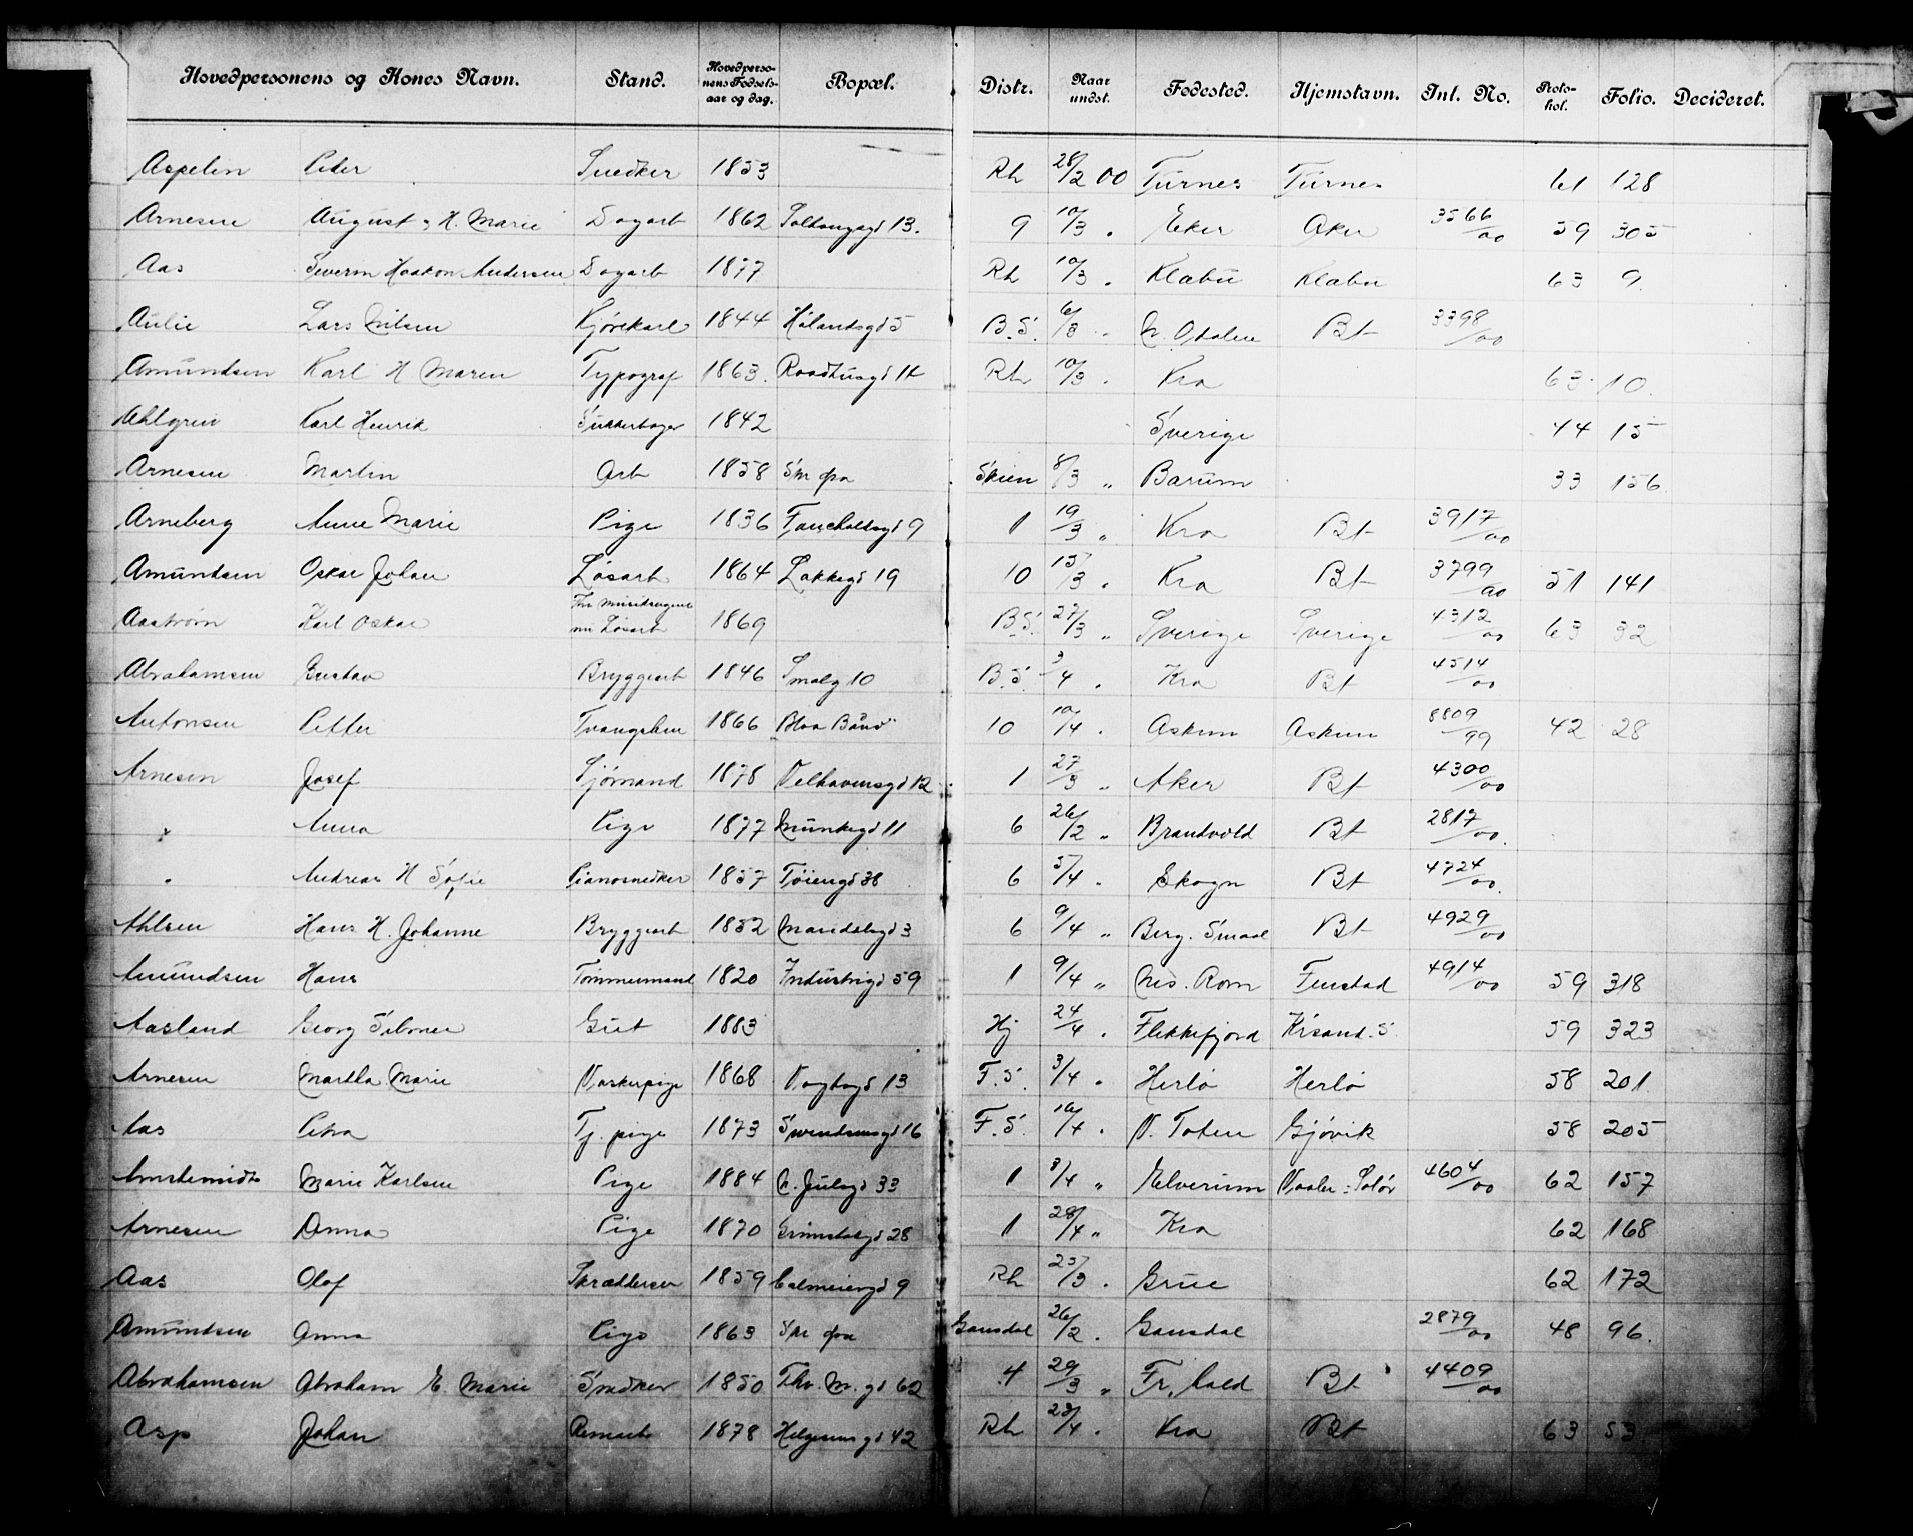 Hovedpersonens og Kones Navn. Stand. Hovedperso-nens Fødsels-aar og dag. Bopæl. Distr. Naar undst. Fødested. Hjemstavn. Inl. No. Proto-kol. Folio. Decideret.
Aspelin Peder Snedker 1853 Rh 28/2 00 Turnes Turnes 61 128
Arnesen August & H. Marie Dagarb 1862 13. 9 10/3 . Eker Aker 3566/00 59 305
Aas Severin Haakon Andersen Dagarb 1877 Rh 10/3 . Klæbu Klæbu 63 9
Aulie Lars Nilsen Kjørekarl 1844 Hølandsgd 5 B.S. 6/3 . N. Odalen Bt 3398/00
Amundsen Karl H Maren Typograf 1863. Raadhusgd 14 Rh 10/3 . Kra 63 10
Ahlgren Karl Henrik Sukkerbager 1842 Sverige 44 15
Arnesen Martin Arb 1858 Skr fra Skien 8/3 „ Bærum 33 156
Arneberg Anne Marie Pige 1836 Fauchaldsgd 9 1 19/3 „ Kra Bt 3917/00
Amundsen Oskar Johan Løsarb 1864 Lakkegd 19 10 15/3 . Kra Bt 3799/00 51 141
Aastrøm Karl Oskar Fhv nu Løsarb 1869 B.S. 27/3 „ Sverige Sverige 4312/00 63 32
Abrahamsen Gustav Bryggearb 1846 Smalg 10 B.S. 3/4 . Kra Bt 4514/00
Antonsen Petter Tvangslem 1866 Blaa Baand 10 10/4 . Askim Askim 8809/99 42 28
Arnesen Josef Sjømand 1878 Velhavensgd 12 1 27/3 „ Aker Bt 4300/00
„ Anna Pige 1877 Munkegd 11 6 26/2 „ Brandvold Bt 2817/00
„ Andreas H Sofie Pianosnedker 1857 Tøiengd 38 6 5/4 . Skogn Bt 4724/00
Ahlsen Hans H. Johanne Bryggearb 1852 Maridalsgd 3 6 9/4 „ Berg. Smaal Bt 4929/00
Amundsen Hans Tømmermand 1820 Industrigd 59 1 9/4 „ Nes. Rom Fenstad 4914/00 59 318
Aasland Georg Gut 1883 Hj 24/4 . Flekkefjord Krsand. S. 59 323
Arnesen Martha Marie Vaskepige 1868 Vogtsgd 13 F.S. 3/4 . Herlø Herlø 58 201
Aas Petra Tj. pige 1873 Svendsensgd 16 F.S. 16/4 . V. Toten Gjøvik 58 205
Marie Karlsen Pige 1884 N. Julsgd 33 1 3/4 „ Elverum Vaaler - Solør 4604/00 62 157
Arnesen Anna Pige 1870 Grimstadgd 28 1 28/4 „ Kra 62 168
Aas Olaf Skræddersv 1859 Calmeiergd 9 Rh 25/3 . Grue 62 172
Amundsen Anna Pige 1863 Skr fra Gausdal 26/2 . Gausdal 2879/00 48 96.
Abrahamsen Abraham E Marie Snedker 1850 Thv. M. gd 62 4 29/3 „ Fr.hald Bt 4409/00
Asp Johan Remarb 1878 Helgesensgd 42 Rh 23/4 . Kra Bt 63 53